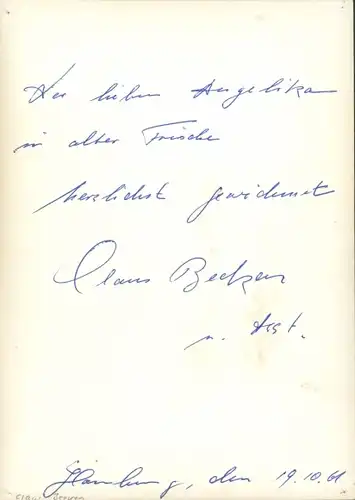 Der lieben Angelika
in alter Frische
herzlichst gewidmet
Claus Becker
Hamburg, den 19.10.61